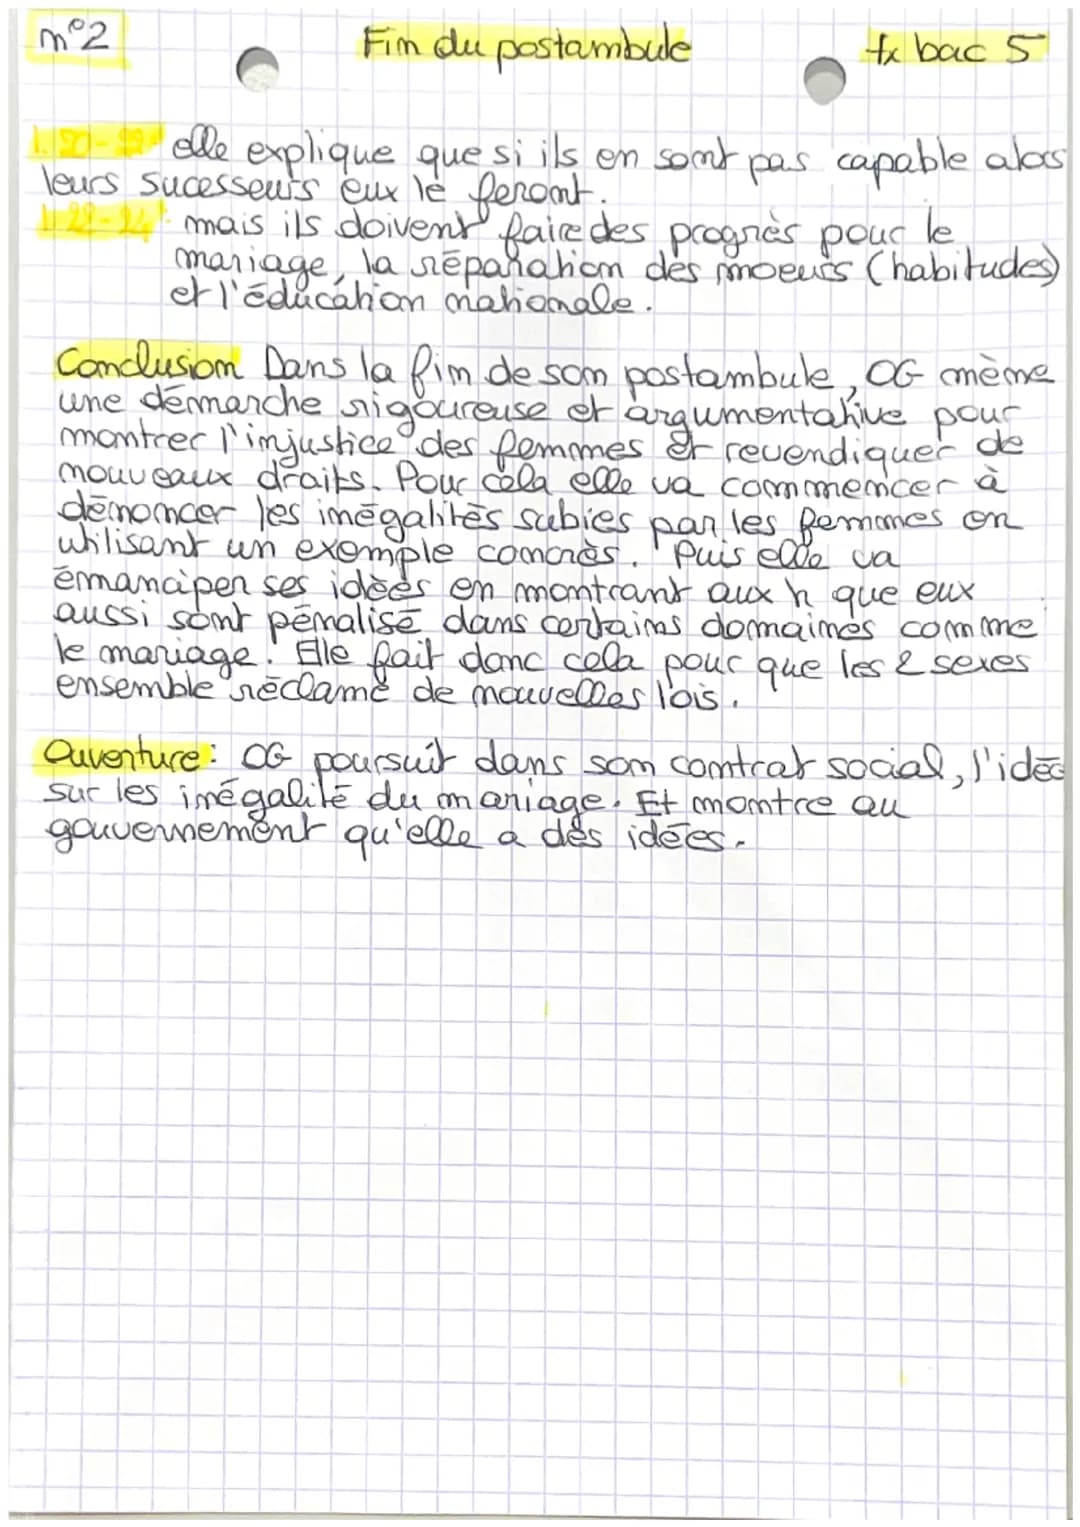 n°2
Fin du postambule
tx bac 5
l. 20-22 elle explique que si ils en sont pas capable alors
leurs sucesseurs eux le feront.
l. 22-24: mais ils doivent faire des progrès pour le
mariage, la réparation des moeurs (habitudes)
et l'éducation nationale.
Conclusion Dans la fin de son postambule, OG mène
une démarche rigoureuse et argumentative pour
montrer l'injustice des femmes et revendiquer de
nouveaux droits. Pour cela elle va commencer à
dénoncer les inégalités subies par les femmes en
utilisant un exemple concrès. Puis elle va
émanciper ses idées en montrant aux h que eux
aussi sont pénalisé dans certains domaines comme
le mariage. Elle fait donc cela pour que les 2 sexes
ensemble réclame de nouvelles lois.
Ouverture: OG poursuit dans son contrat social, l'idée
sur les inégalité du mariage. Et montre au
gouvernement qu'elle a des idées.